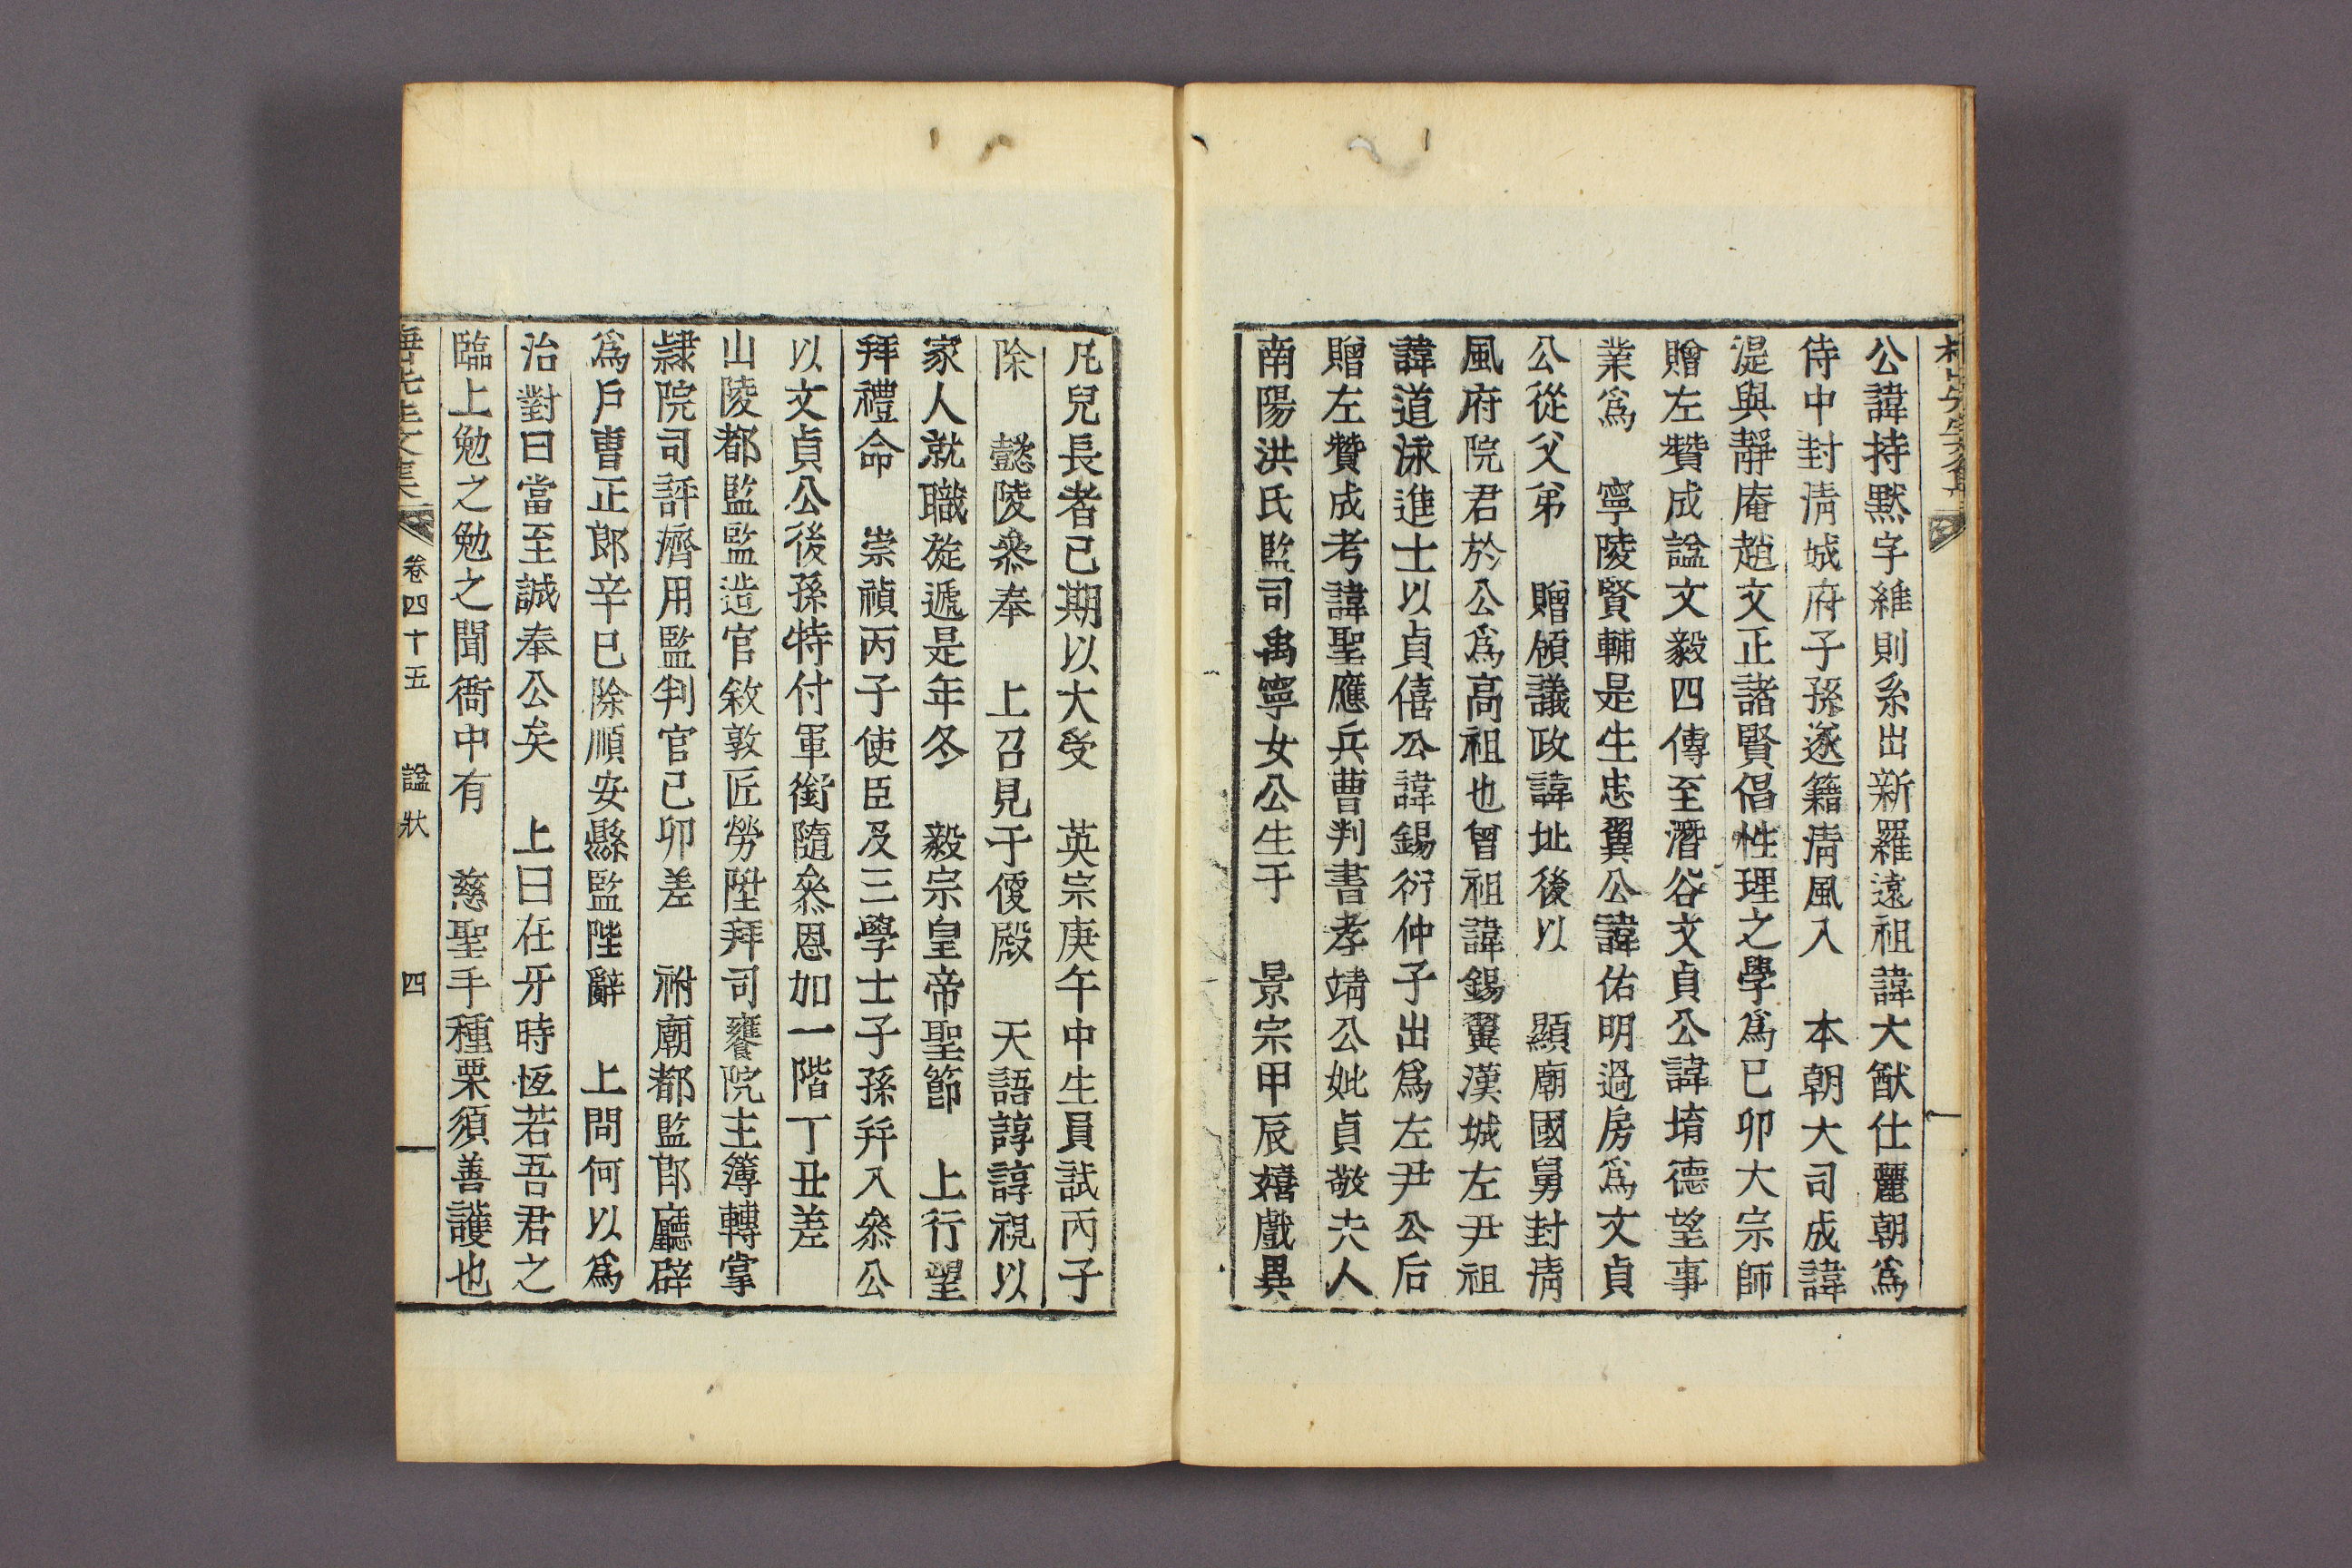 公諱持默字維則系出新羅遠祖諱大猷仕麗朝爲
侍中封淸城府子孫遂籍淸風入 本朝大司成諱
湜與靜庵趙文正諸賢倡性理之學爲已卯大宗師
贈左贊成諡文毅四傳至潛谷文貞公諱堉德望事
業爲 寧陵賢輔是生忠翼公諱佑明過房爲文貞
公從父弟 贈領議政諱址後以 顯廟國舅封淸
風府院君於公爲高祖也曾祖諱錫翼漢城左尹祖
諱道泳進士以貞僖公諱錫衍仲子出爲左尹公后
贈左贊成考諱聖應兵曹判書孝靖公妣貞敬夫人
南陽洪氏監司禹寧女公生于 景宗甲辰嬉戲異
凡兒長者已期以大受 英宗庚午中生員試丙子
除 懿陵叅奉 上召見于便殿 天語諄諄視以
家人就職旋遞是年冬 毅宗皇帝聖節 上行望
拜禮命 崇禎丙子使臣及三學士子孫并入叅公
以文貞公後孫特付軍銜隨叅恩加一階丁丑差
山陵都監監造官敘敦匠勞陞拜司饔院主簿轉掌
隷院司評濟用監判官己卯差 祔廟都監郎廳辟
爲戶曹正郎辛巳除順安縣監陛辭 上問何以爲
治對曰當至誠奉公矣 上曰在牙時恆若吾君之
臨上勉之勉之聞衙中有 慈聖手種栗須善護也
卷四十五 諡狀 四